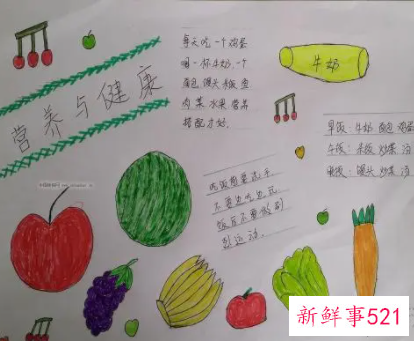 营养与健康
每天吃一个鸡蛋
喝一杯牛奶,一个
面包馒头米饭鱼
肉菜水果营养
搭配才好.
牛奶
早饭:牛奶 面包 鸡蛋
午饭:米饭 炒菜 汤
晚饭:馒头 炒菜 汤
吃饭前要洗手
不要边吃边玩
饭后不要做剧
烈运动.
新鲜事521